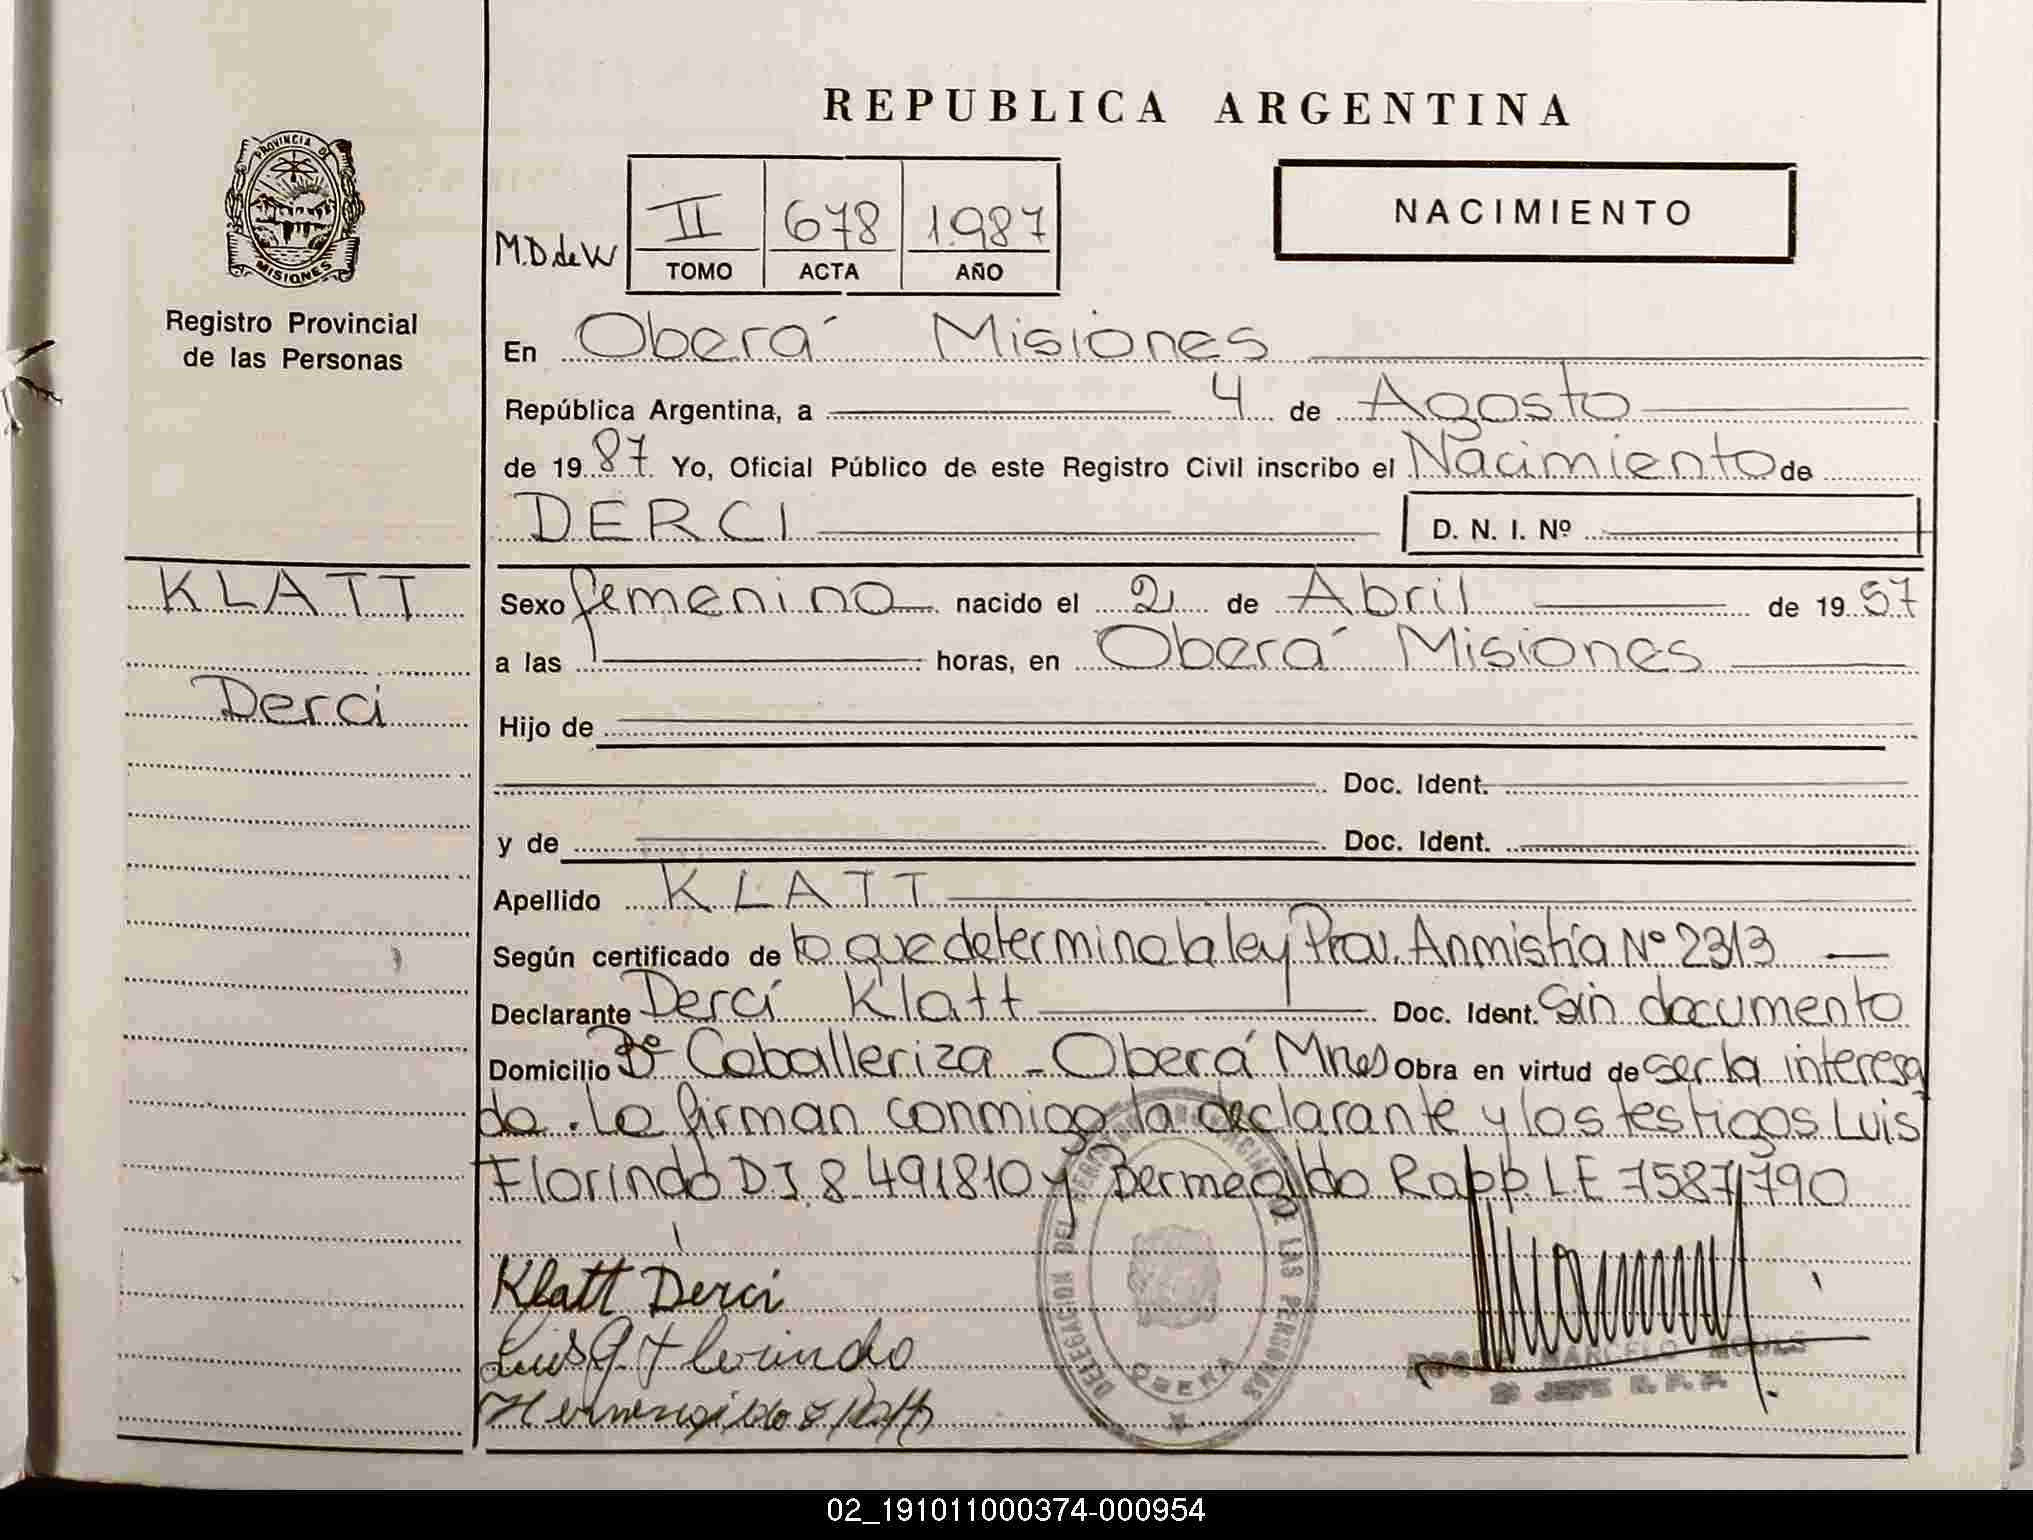 REPUBLICA ARGENTINA
PROVINCIA DE
MISIONES
Registro Provincial
de las Personas
M.D de W
II 678 1.987
TOMO ACTA AÑO
NACIMIENTO
En Oberá Misiones
República Argentina, a 4 de Agosto
de 1987. Yo, Oficial Público de este Registro Civil inscribo el Nacimiento de
DERCI D. N. I. Nº
KLATT
Derci
Sexo femenino nacido el 2 de Abril de 1957
a las horas, en Oberá Misiones
Hijo de
Doc. Ident.
y de Doc. Ident.
Apellido KLATT
Según certificado de lo que determina la ley Prov. Anmistía Nº 2313
Declarante Derci Klatt Doc. Ident. Sin documento
Domicilio Bº Caballeriza - Oberá Mnes Obra en virtud de ser la interesa
da. Lo firman conmigo la declarante y los testigos Luis
Florindo DI 8 491810 y Bermegildo Rapp LE 7587790
Klatt Derci
Luis G. Florindo
DELEGACION DEL REGISTRO PROVINCIAL DE LAS PERSONAS
OBERA
MARCELO
2º JEFE R. P. P.
02_191011000374-000954